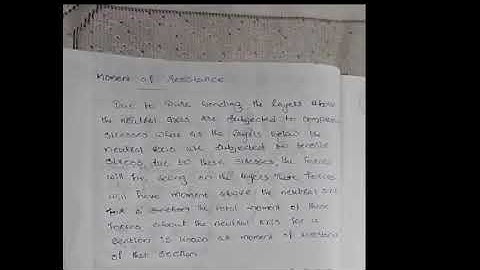 Moment of Resistance
Due to Pure bending the layers above
the neutral axis are subjected to compressive
stresses where as the layers below the
Neutral axis are subjected to tensile
stress, due to these stresses, the forces
will be acing on the layers These forces
will have moment above the neutral axis
for a section the total moment of these
forces about the neutral axis for a
section is known as moment of resistance
of that section.